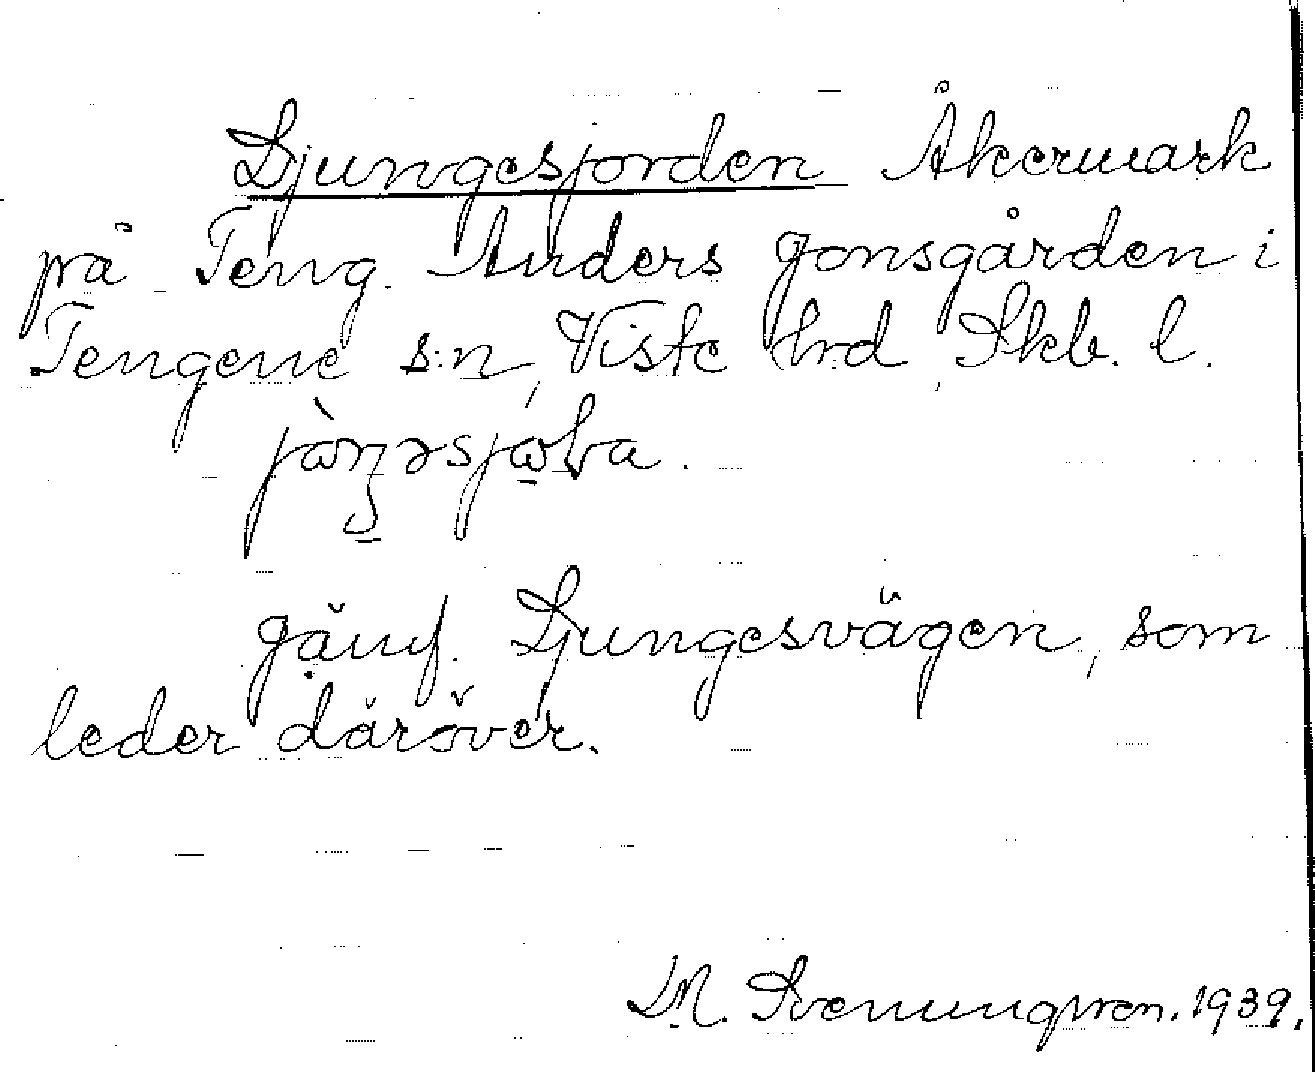 Ljungesjorden Åkermark
på Teng. Anders Jonsgården i
Tengene s:n, Viste hrd, Skb. l.
Jämf. Ljungesvägen, som
leder däröver.
M. Svenungsson. 1939.